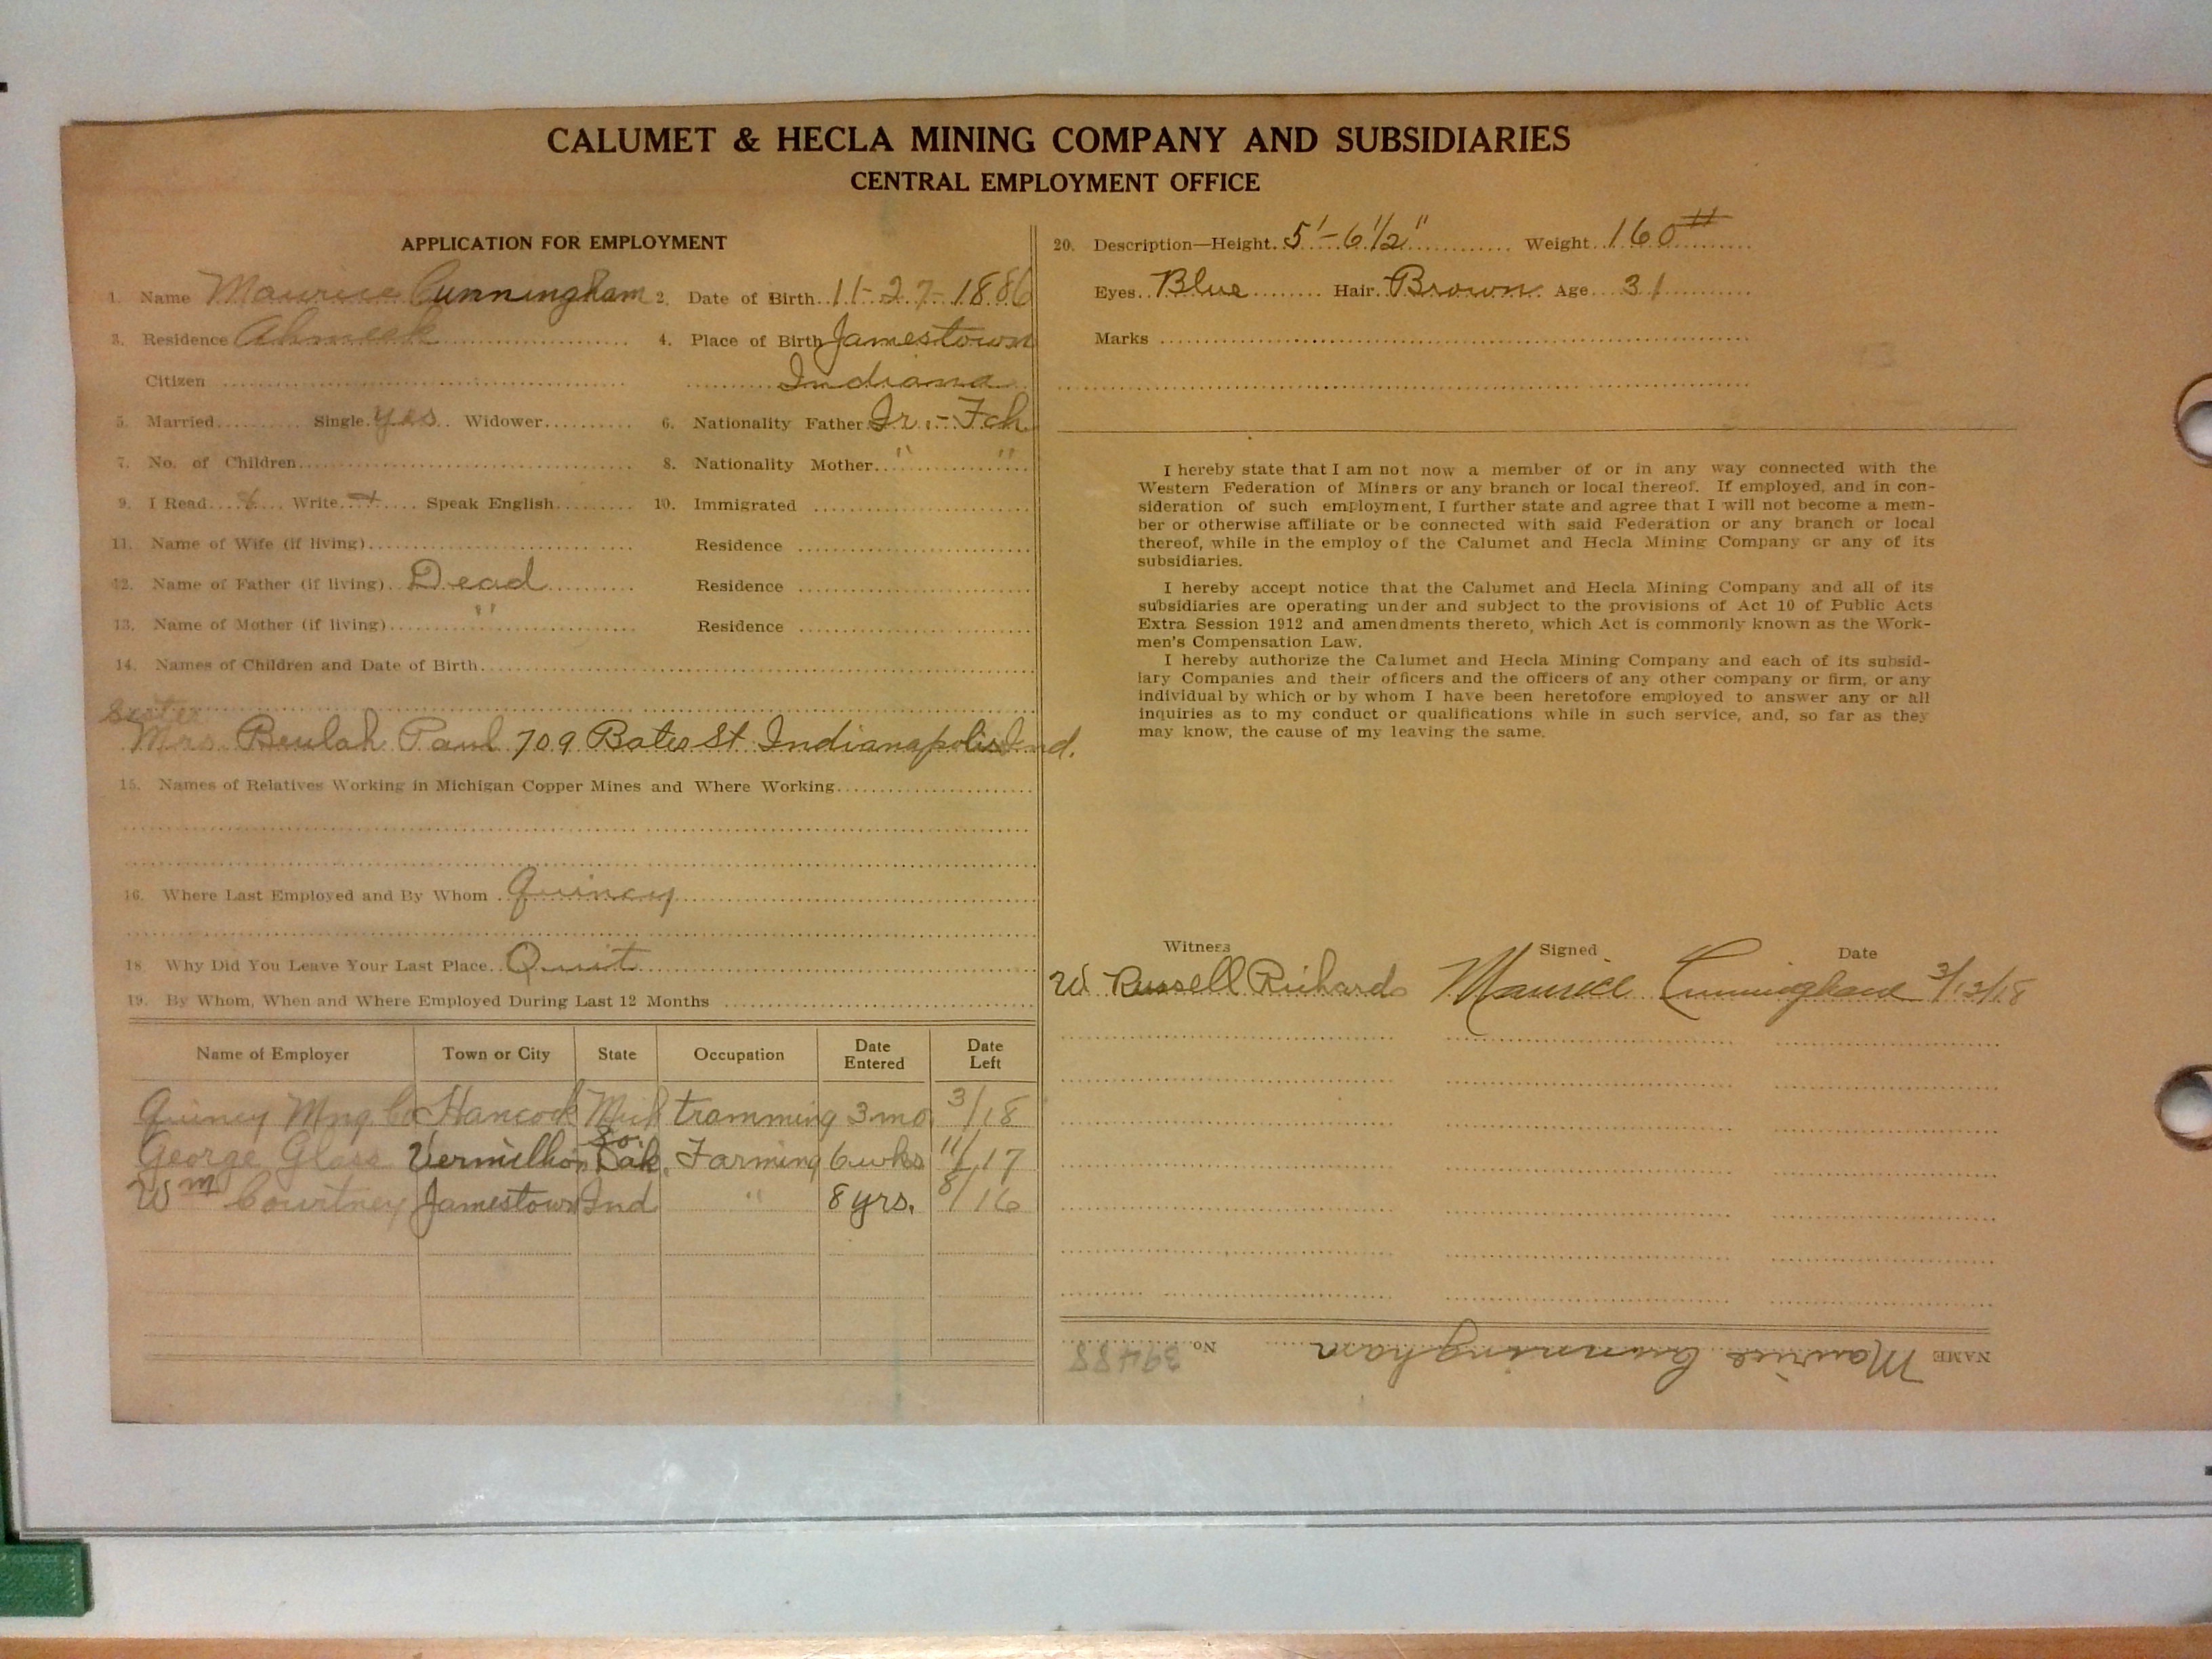 CALUMET & HECLA MINING COMPANY AND SUBSIDIARIES
CENTRAL EMPLOYMENT OFFICE
APPLICATION FOR EMPLOYMENT
1. Name Maurice Cunningham 2. Date of Birth 11-27-1886
3. Residence Ahmeek 4. Place of Birth Jamestown
Citizen Indiana
5. Married Single yes Widower 6. Nationality Father Ir.-Fch
7. No. of Children 8. Nationality Mother " "
9. I Read Write Speak English 10. Immigrated
11. Name of Wife (if living) Residence
12. Name of Father (if living) Dead Residence
13. Name of Mother (if living) " Residence
14. Names of Children and Date of Birth
Sister
Mrs. Beulah Paul 709 Bates St Indianapolis Ind.
15. Names of Relatives Working in Michigan Copper Mines and Where Working
16. Where Last Employed and By Whom Quincy
18. Why Did You Leave Your Last Place Quit
19. By Whom, When and Where Employed During Last 12 Months
Name of Employer Town or City State Occupation Date Entered Date Left
Quincy Mng Co Hancock Mich tramming 3 mo 3/18
George Glass Vermillion So. Dak. Farming 6 wks 11/17
Wm Courtney Jamestown Ind " 8 yrs. 8/16
20. Description—Height 5'-6 1/2" Weight 160#
Eyes Blue Hair Brown Age 31
Marks
I hereby state that I am not now a member of or in any way connected with the
Western Federation of Miners or any branch or local thereof. If employed, and in con-
sideration of such employment, I further state and agree that I will not become a mem-
ber or otherwise affiliate or be connected with said Federation or any branch or local
thereof, while in the employ of the Calumet and Hecla Mining Company or any of its
subsidiaries.
I hereby accept notice that the Calumet and Hecla Mining Company and all of its
subsidiaries are operating under and subject to the provisions of Act 10 of Public Acts
Extra Session 1912 and amendments thereto, which Act is commonly known as the Work-
men's Compensation Law.
I hereby authorize the Calumet and Hecla Mining Company and each of its subsid-
iary Companies and their officers and the officers of any other company or firm, or any
individual by which or by whom I have been heretofore employed to answer any or all
inquiries as to my conduct or qualifications while in such service, and, so far as they
may know, the cause of my leaving the same.
Witness Signed Date
W Russell Richards Maurice Cunningham 3/12/18
NAME Maurice Cunningham No. 39488